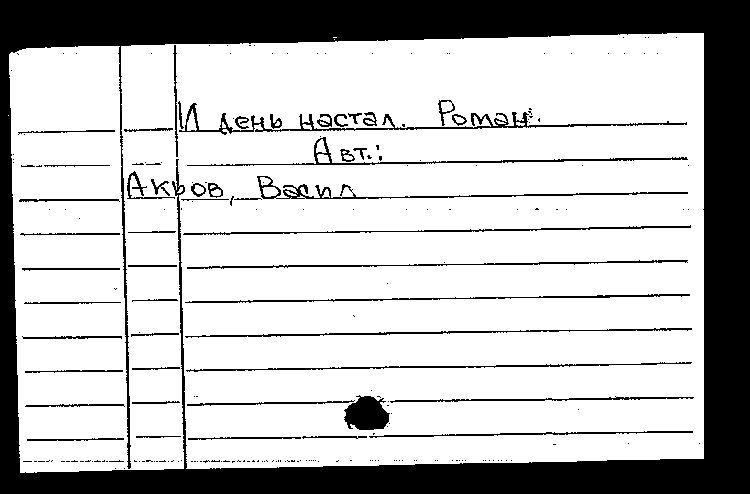 И день настал. Роман.
Авт.:
Акьов, Васил